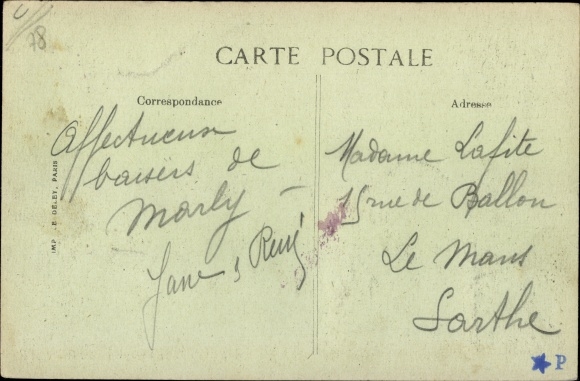 78
CARTE POSTALE
Correspondance
Adresse
Affectueux
baisers de
Marly –
Jane & René
Madame Lafite
15 rue de Ballon
Le Mans
Sarthe
P